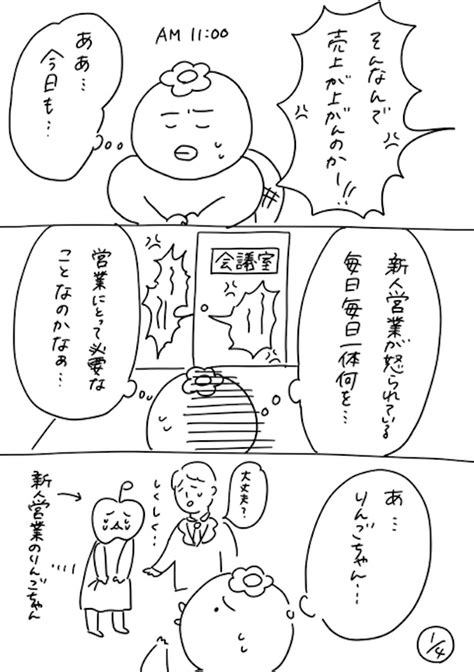 AM 11:00
そんなんで
売上が上がんのかー!!
ああ…
今日も…
新人営業が怒られている
毎日毎日一体何を…
会議室
営業にとって必要な
ことなのかなぁ…
あ…
りんごちゃん…
大丈夫?
しくしく…
新人営業のりんごちゃん
1/4